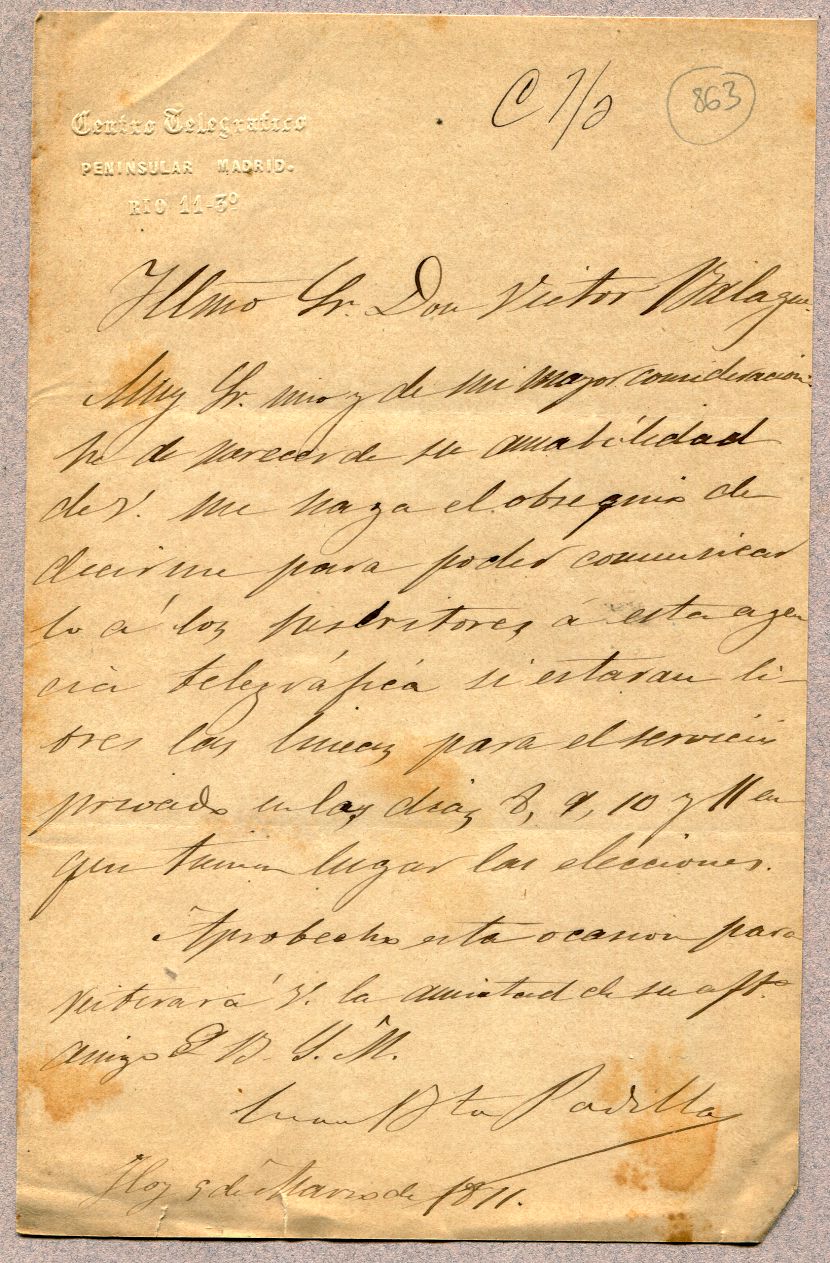 863
Centro Telegrafico
PENINSULAR MADRID.
RIO 11-3º
Illmo Sr. Don Victor Balaguer
Muy Sr. mio y de mi mayor consideracion
he de merecer de su amabilidad
de V. me haga el obsequio de
decirme para poder comunicar
lo á los suscritores á esta agen
cia telegráfica si estaran li-
bres las lineas para el servicio
privado en las dias 8, 9, 10 y 11 en
que tienen lugar las elecciones.
Aprobecho esta ocasion para
reiterar á V. la amistad de su afto.
amigo Q B. S. M.
Juan Bta Padilla
Hoy 5 de Marzo de 1871.